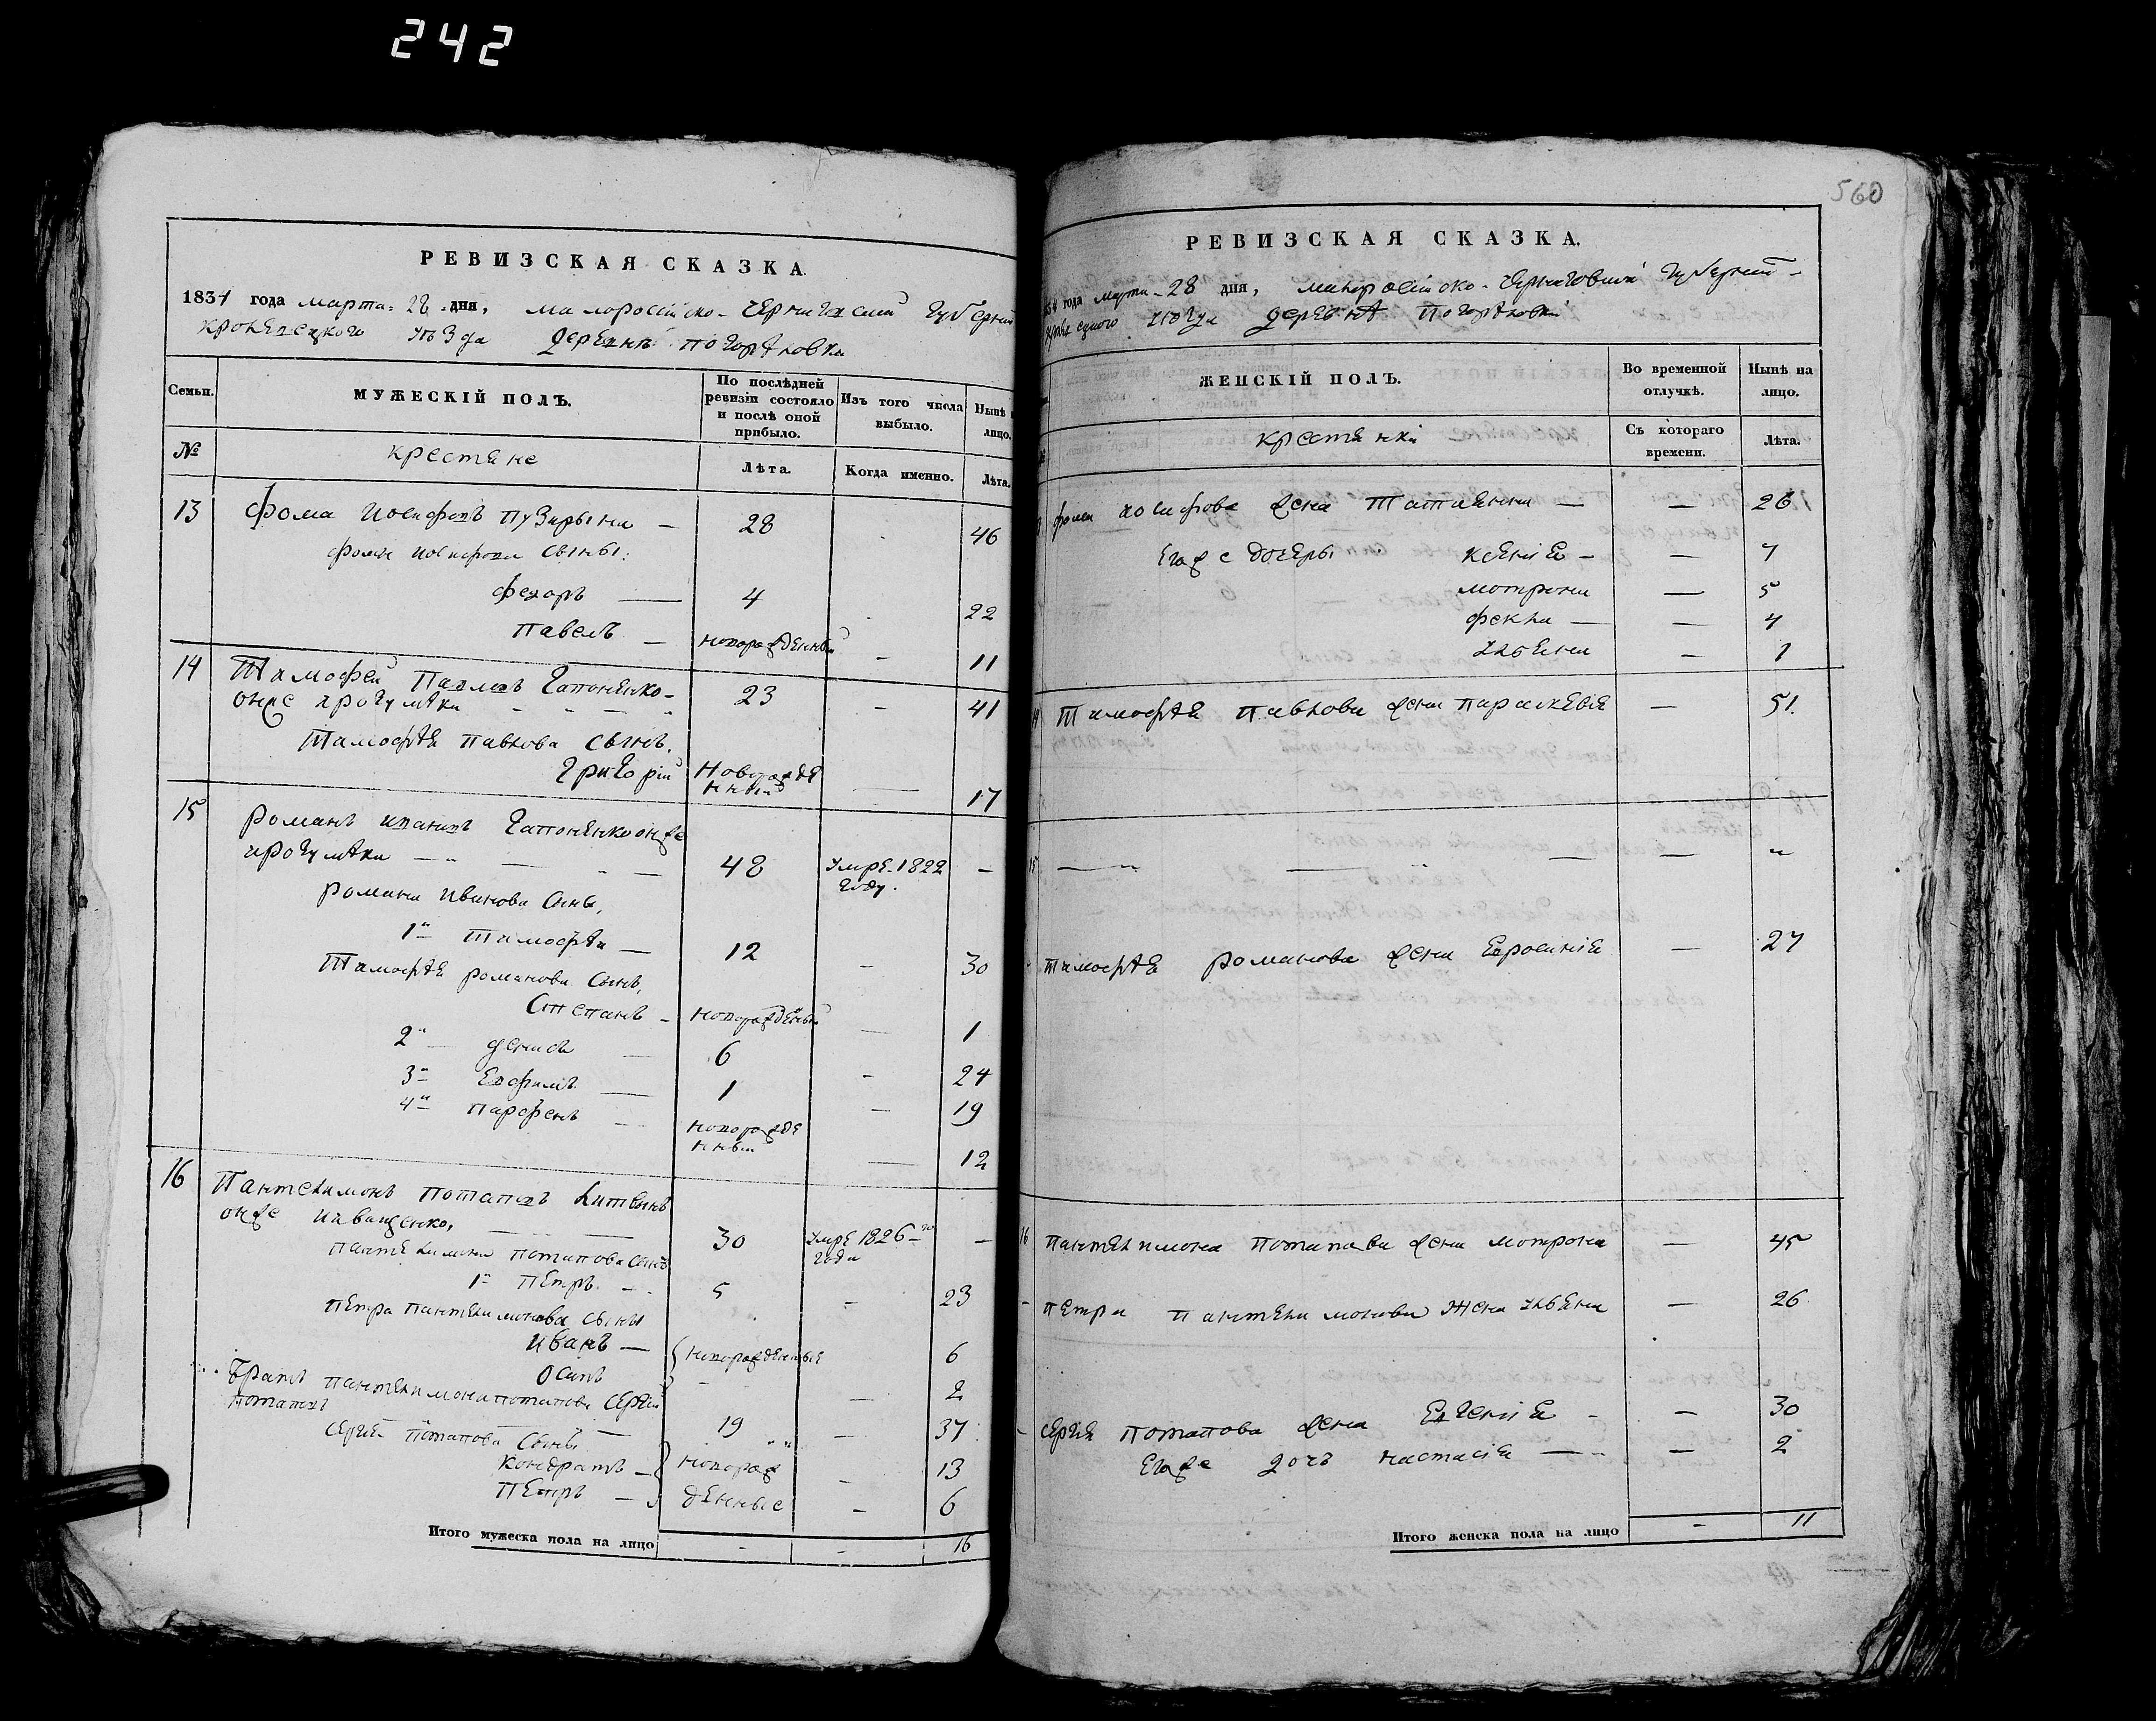 242
560
РЕВИЗСКАЯ СКАЗКА.
1834 года марта 28 дня, малоросійско-Черниговской Губерніи
кролевецкого уѣзда деревнѣ погорѣловки
Семьи.
МУЖЕСКІЙ ПОЛЪ.
По послѣдней ревизіи состояло и послѣ оной прибыло.
Изъ того числа выбыло.
Нынѣ лицо.
№
крестяне
Лѣта.
Когда именно.
Лѣта.
13 Фома Иосифовъ Пузыръ — 28 46
фомы иосифова сыны:
федоръ — 4 22
павелъ — новорожденный — 11
14 Тимофей Павловъ Гапоненко 23 — 41
онже
Тимофѣя павлова сынъ,
Григорій новорожде
нный — 17
15 Романъ ивановъ Гапоненко онже
48 умре 1822 —
году.
романа иванова сыны,
1й Тимофѣй — 12 — 30
Тимофѣя романова сынъ,
Степанъ — новорожденый — 1
2й денисъ — 6 — 24
3й Евфимъ — 1 — 19
4й парфенъ новорожде
нный — 12
16 Пантелимонъ потаповъ Литвинъ
онже иващенко, 30 умре 1826го —
года
пантелимона потапова сынъ
1й пётръ 5 — 23
пётра пантелимонова сыны
иванъ — новорожденные 6
Осипъ — 2
братъ пантелимона потапова Сергій
потаповъ — 19 — 37
сергія потапова сыны
кондратъ — новорож — 13
пётръ — денные — 6
Итого мужеска пола на лицо - - 16
РЕВИЗСКАЯ СКАЗКА.
года марта 28 дня, малоросійско-черниговской Губерніи
деревнѣ погорѣловки
ЖЕНСКІЙ ПОЛЪ.
Во временной отлучкѣ.
Нынѣ на лицо.
крестянки
Съ котораго времени.
Лѣта.
фомы иосифова жена Татиянна — — 26
Егоже дочеры ксенія — — 7
мотрона — 5
фекла — — 4
улияна — 1
14 Тимофѣя павлова жена параскевія — 51.
15 — — — — "
тимофѣя романова жена Евросинія — 27
16 пантелимона потапова жена мотрона — 45
— пётра пантелимонова жена улияна — 26
— сергія потапова жена Евгенія — 30
Егоже дочъ настасія — — 2
Итого женска пола на лицо - 11